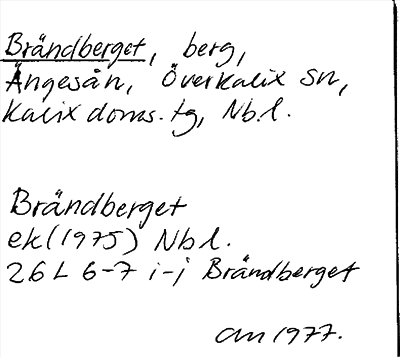 Brändberget, berg,
Ängesån, Överkalix sn,
Kalix doms. tg, Nb.l.
Brändberget
ek (1975) Nbl.
26L 6-7 i-j Brändberget
am 1977.